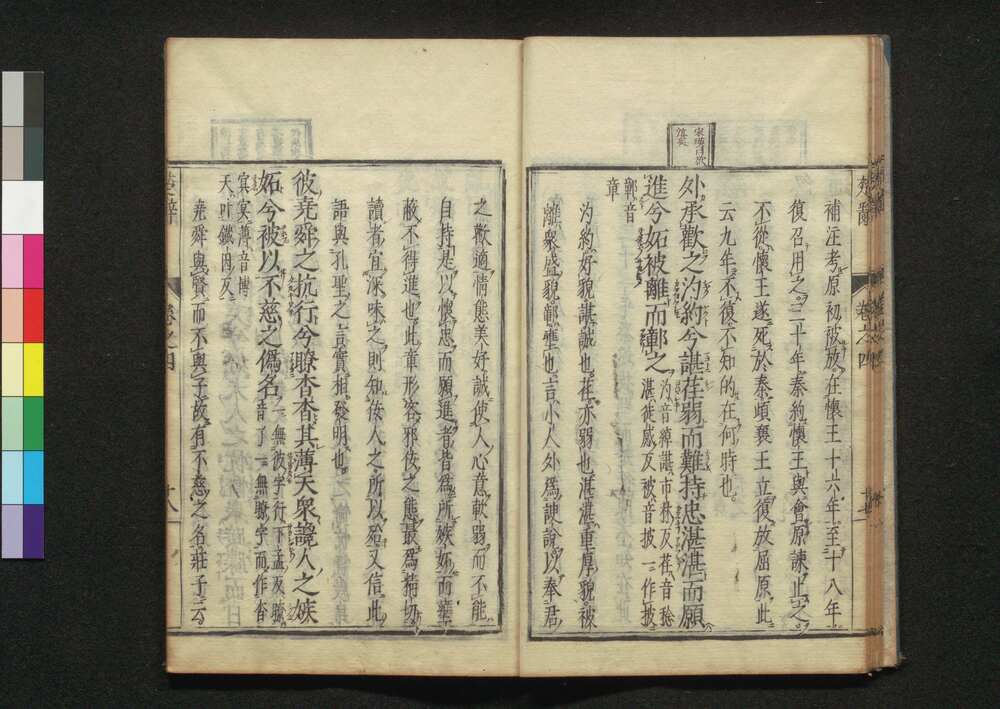 補注考原初被放在懷王十六年至十八年
復召用之三十年秦約懷王與會原諫止之
不從懷王遂死於秦頃襄王立復放屈原此
云九年不復不知的在何時也
外承歡之汋約兮諶荏弱而難持忠湛湛而願
進兮妬被離而鄣之
汋音綽諶市林反荏音稔
湛徒感反被音披一作披
鄣音
章
汋約好貌諶誠也荏亦弱也湛湛重厚貌被
離衆盛貌鄣壅也言小人外爲諛說以奉君
之歡適情態美好誠使人心意軟弱而不能
自持是以懷忠而願進者皆爲所嫉妬而壅
蔽不得進也此章形容邪佞之態最爲精切
讀者宜深味之則知佞人之所以殆又信此
語與孔聖之言實相發明也
彼堯舜之抗行兮瞭杳杳其薄天衆讒人之嫉
妬兮被以不慈之僞名
一無彼字行下孟反瞭
音了一無瞭字而作杳
冥冥薄音博
天叶鐵因反
堯舜與賢而不與子故有不慈之名莊子云
楚辭
卷之四